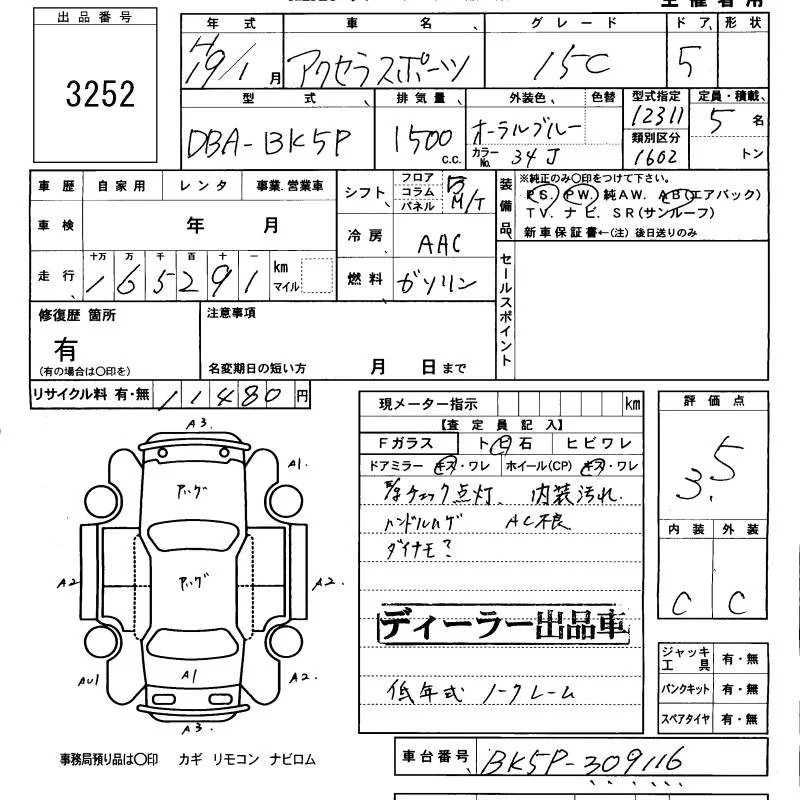 出品番号
3252
年式 車名 グレード ドア 形状
H19/1月 アクセラスポーツ 15C 5
型式 排気量 外装色 色替 型式指定 定員・積載
DBA-BK5P 1500 C.C. オーラルブルー 12311 5名
カラーNo. 34J 類別区分 1602 トン
車歴 自家用 レンタ 事業.営業車
車検 年 月
走行 十万 万 千 百 十 一
165291 km マイル
シフト フロア コラム パネル 5 M/T
冷房 AAC
燃料 ガソリン
装備品 ※純正のみ〇印をつけて下さい。
PS. PW. 純AW. AB(エアバック)
TV. ナビ. SR(サンルーフ)
新車保証書←(注) 後日送りのみ
セールスポイント
修復歴 箇所
有
(有の場合は〇印を)
注意事項
名変期日の短い方 月 日まで
リサイクル料 有・無 11480円
現メーター指示 km
【査定員記入】
Fガラス ト石 ヒビワレ
ドアミラー キズ・ワレ ホイール(CP) キズ・ワレ
チェック点灯、内装汚れ.
ハンドルハゲ AC不良
ダイナモ?
ディーラー出品車
低年式 ノークレーム
評価点
3.5
内装 外装
C C
ジャッキ工具 有・無
パンクキット 有・無
スペアタイヤ 有・無
A3.
A1.
A2
A2.
AU1
A1
A2.
A3.
事務局預り品は〇印 カギ リモコン ナビロム
車台番号 BK5P-309116